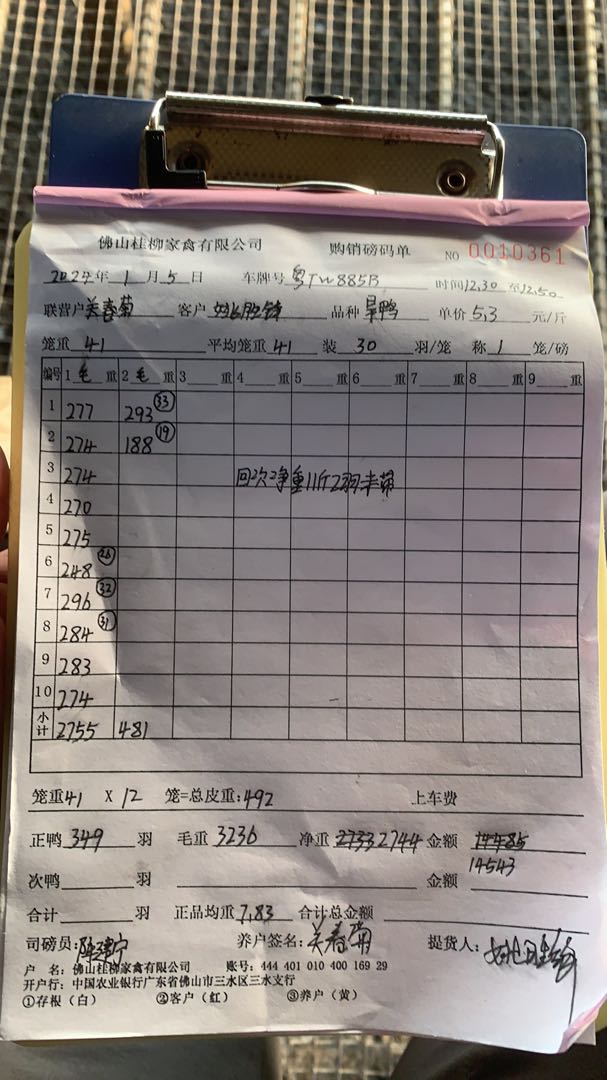 佛山桂柳家禽有限公司 购销磅码单 NO 0010361
2024年1月5日 车牌号粤TW885B 时间12.30至12.50
联营户关春菊 客户 品种旱鸭 单价5.3元/斤
笼重41 平均笼重41 装30羽/笼 称1笼/磅
编号 1毛重 2毛重 3重 4重 5重 6重 7重 8重 9重
1 277 293 33
2 274 188 19
3 274 回次净重11斤2羽
4 270
5 275
6 248 26
7 296 32
8 284 31
9 283
10 274
小计 2755 481
笼重41 X 12 笼=总皮重:492 上车费
正鸭349羽 毛重3236 净重2733 2744 金额14485
14543
次鸭 羽 金额
合计 羽 正品均重7.83 合计总金额
司磅员: 养户签名:关春菊 提货人:
户 名:佛山桂柳家禽有限公司 账号:444 401 010 400 169 29
开户行:中国农业银行广东省佛山市三水区三水支行
①存根(白) ②客户(红) ③养户(黄)